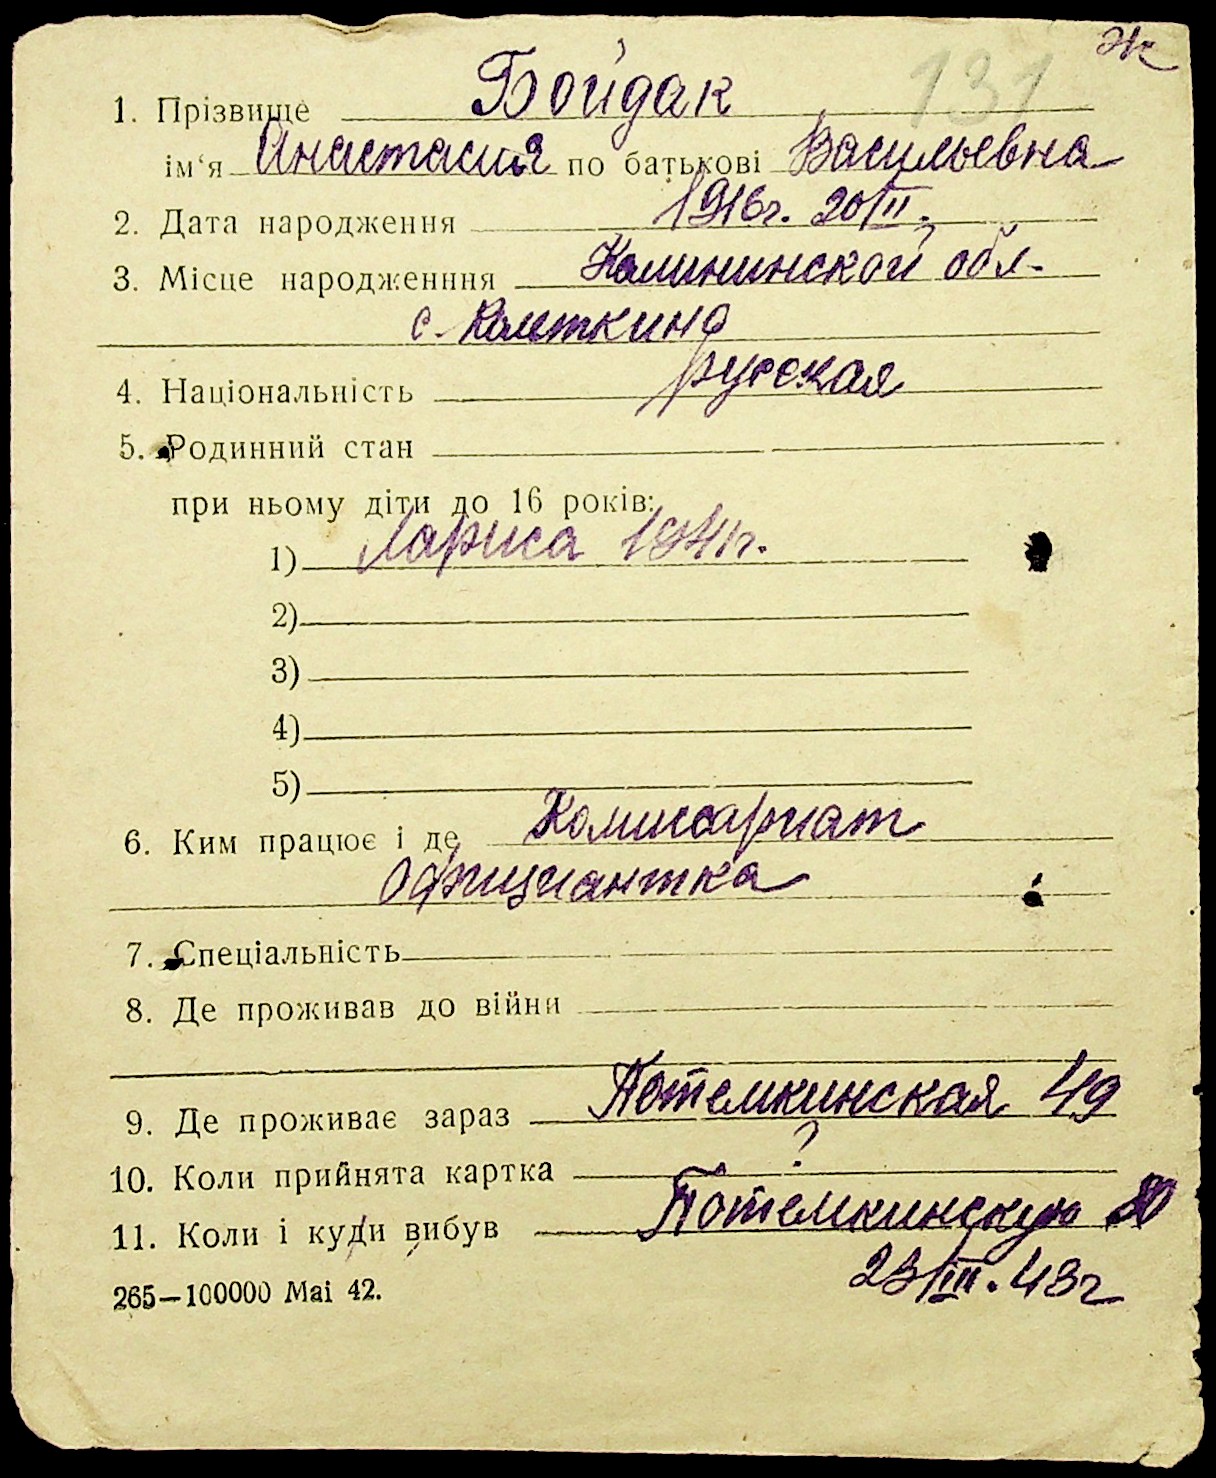 Ж
131
1. Прізвище Бойдак
ім'я Анастасия по батькові Васильевна
2. Дата народження 1916г. 20/II.
3. Місце народженння Калининской обл.
с. Колеткино
4. Національність русская
5. Родинний стан
при ньому діти до 16 років:
1) Лариса 1941г.
2)
3)
4)
5)
6. Ким працює і де Комиссариат
официантка
7. Спеціальність
8. Де проживав до війни
9. Де проживає зараз Потемкинская 49
10. Коли прийнята картка ?
11. Коли і куди вибув Потемкинскую
265—100000 Mai 42.
23/III. 43г